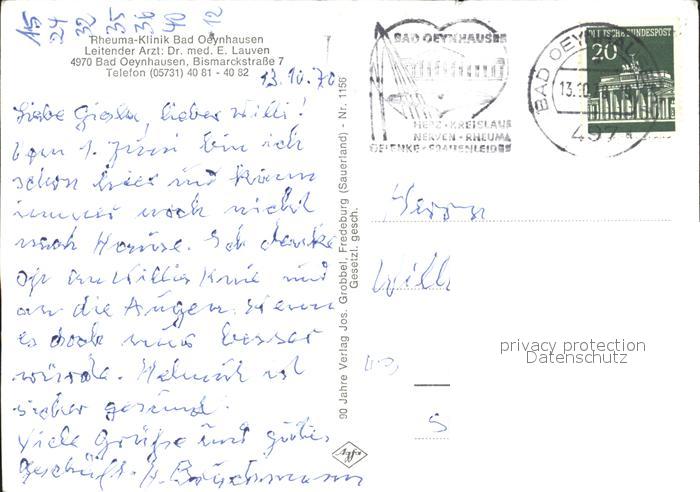 15 24 32 35 36 40 12
Rheuma-Klinik Bad Oeynhausen
Leitender Arzt: Dr. med. E. Lauven
4970 Bad Oeynhausen, Bismarckstraße 7
Telefon (05731) 40 81 - 40 82
13.10.70
Liebe Gisela, lieber Willi!
1. Juni bin ich
schon hier und kann
immer noch nicht
nach Hause. Ich denke
oft an Willis Knie und
an die Augen. Wenn
es doch nur besser
würde. Helmut ist
sicher gesund.
Viele Grüße und gutes
90 Jahre Verlag Jos. Grobbel, Fredeburg (Sauerland) - Nr. 1156
Gesetzl. gesch.
Agfa
BAD OEYNHAUSEN
HERZ · KREISLAUF
NERVEN · RHEUMA
GELENKE · FRAUENLEIDEN
BAD OEYNHAUSEN
13.10.
497
DEUTSCHE BUNDESPOST
20
Herrn
Willi
privacy protection
Datenschutz